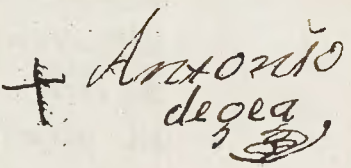 Antonio
degea